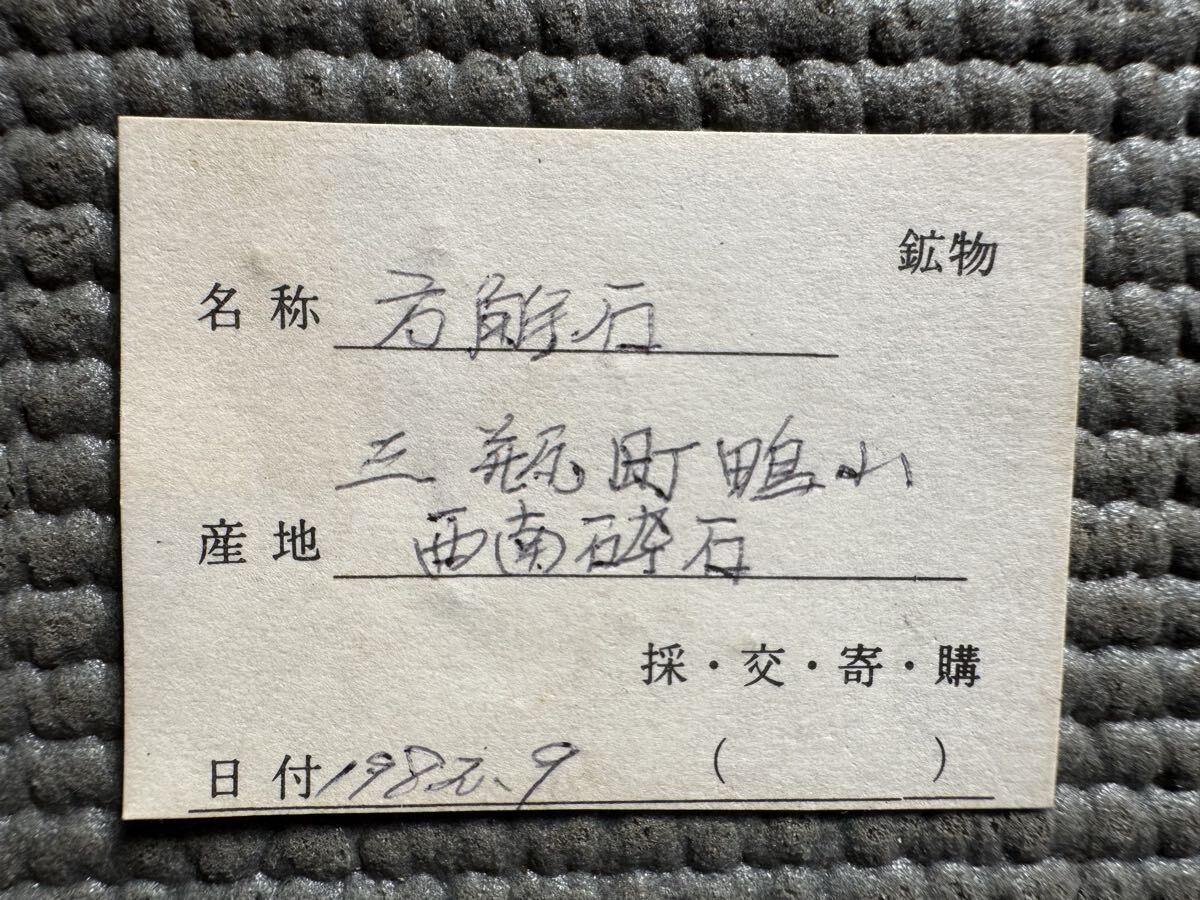 鉱物
名称 方解石
三瓶町鴫山
産地 西南砕石
採・交・寄・購
日付 ( )